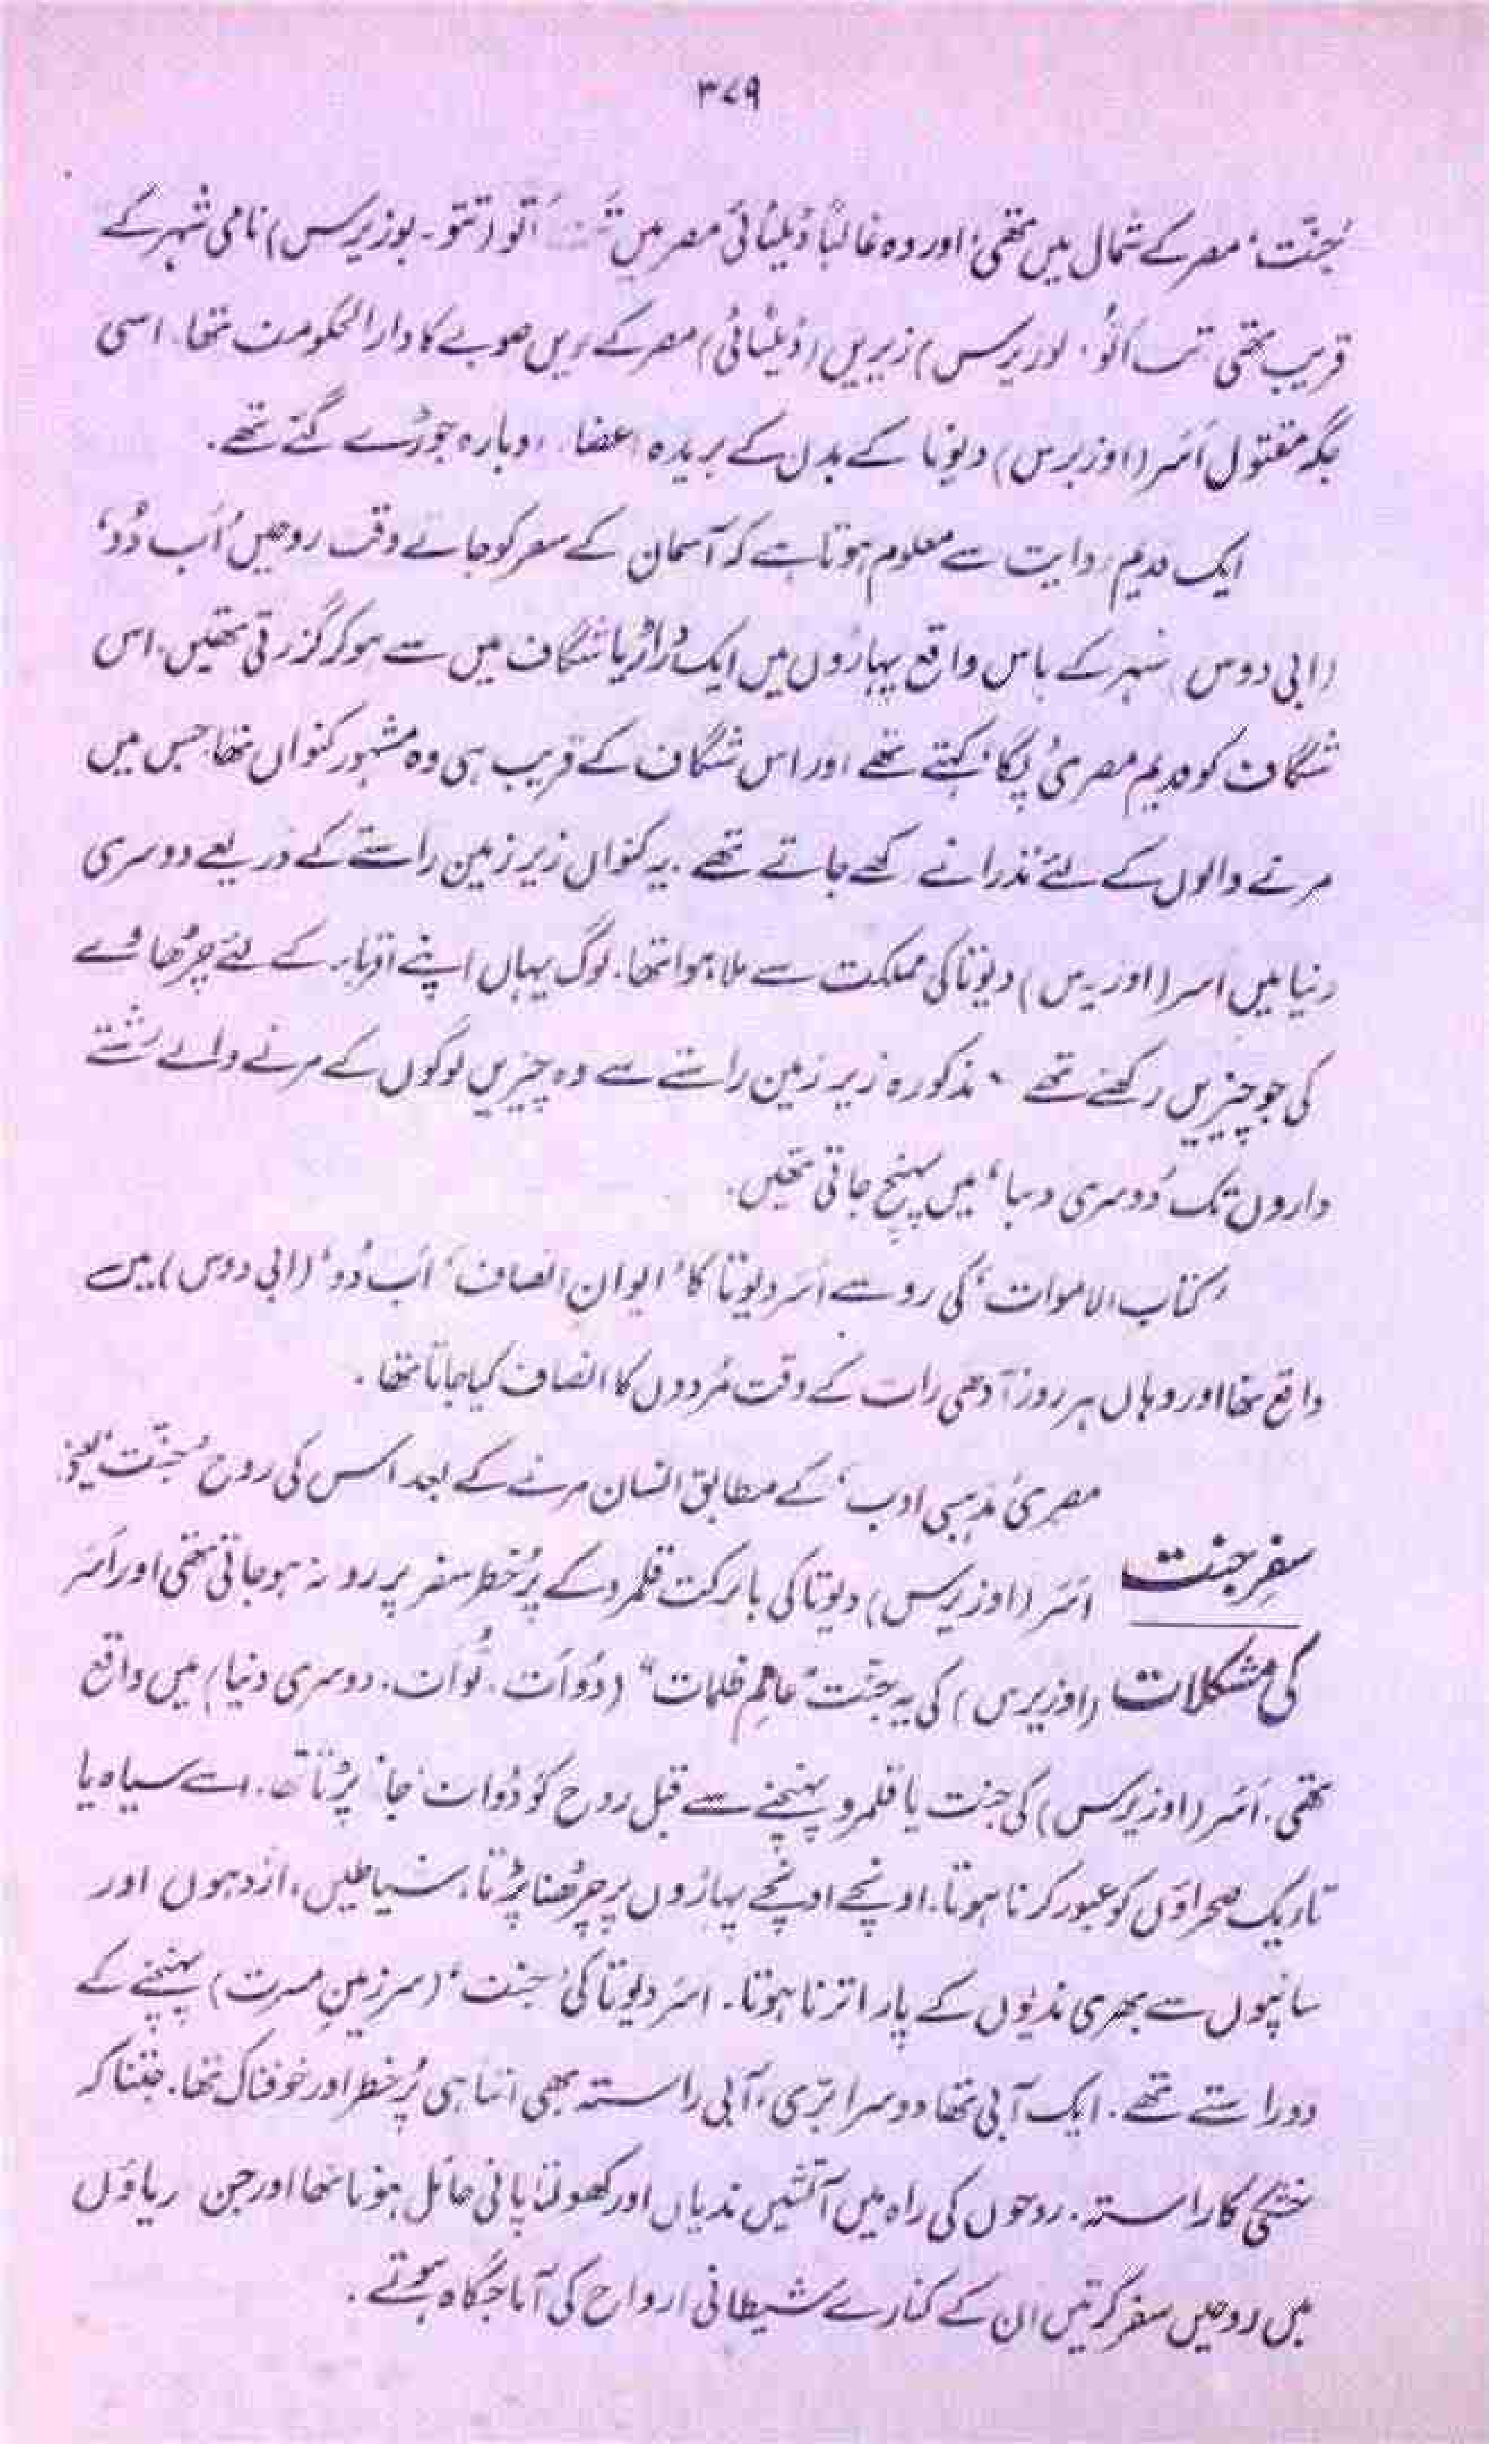 ۳۷۹
’جنت‘ مصر کے شمال میں تھی، اور وہ غالباً ڈیلٹائی مصر میں تو (تتو۔ بوزیریس) نامی شہر کے
قریب تھی زیریں (ڈیلٹائی) مصر کے ویں صوبے کا دارالحکومت تھا۔ اسی
جگہ مقتول اَسَر (اوزیرس) دیوتا کے بدن کے بریدہ اعضاء دوبارہ جوڑے گئے تھے۔
ایک قدیم روایت سے معلوم ہوتا ہے کہ آسمان کے سفر کو جاتے وقت روحیں ’اَب دُو‘
(ابی دوس) شہر کے پاس واقع پہاڑوں میں ایک دراڑ یا شگاف میں سے ہو کر گزرتی تھیں۔ اس
شگاف کو قدیم مصری ’پگا‘ کہتے تھے اور اس شگاف کے قریب ہی وہ مشہور کنواں تھا جس میں
مرنے والوں کے لئے نذرانے رکھے جاتے تھے۔ یہ کنواں زیر زمین راستے کے ذریعے دوسری
دنیا میں اسر (اوزیرس) دیوتا کی مملکت سے ملا ہوا تھا۔ لوگ یہاں اپنے اقرباء کے لئے چڑھاوے
کی جو چیزیں رکھتے تھے، مذکورہ زیر زمین راستے سے وہ چیزیں لوگوں کے مرنے والے رشتے
داروں تک ’دوسری دنیا‘ میں پہنچ جاتی تھیں۔
’کتاب الاموات‘ کی رو سے اسر دیوتا کا ’ایوان انصاف‘ ’اَب دُو‘ (ابی دوس) میں
واقع تھا اور وہاں ہر روز آدھی رات کے وقت مُردوں کا انصاف کیا جاتا تھا۔
سفرِ جنت
کی مشکلات
مصری ’مذہبی ادب‘ کے مطابق انسان مرنے کے بعد اس کی روح ’جنت‘ یعنی
اَسَر (اوزیریس) دیوتا کی بابرکت قلمرو کے پُرخطر سفر پر روانہ ہو جاتی تھی اور اَسَر
(اوزیرس) کی یہ جنت ”عالمِ ظلمات“ (دُوآت۔ تُوآت۔ دوسری دنیا) میں واقع
تھی۔ اَسَر (اوزیریس) کی جنت یا قلمرو پہنچنے سے قبل روح کو ’دُوات‘ جانا پڑتا تھا۔ اسے سیاہ یا
تاریک صحراؤں کو عبور کرنا ہوتا۔ اونچے اونچے پہاڑوں پر چڑھنا پڑتا، شیاطین، اژدہوں اور
سانپوں سے بھری ندیوں کے پار اترنا ہوتا۔ اسر دیوتا کی ’جنت‘ (سرزمینِ مسرت) پہنچنے کے
دو راستے تھے۔ ایک آبی تھا دوسرا برّی، آبی راستہ بھی اتنا ہی پُرخطر اور خوفناک تھا۔ جتنا کہ
خشکی کا راستہ۔ روحوں کی راہ میں آتشیں ندیاں اور کھولتا پانی حائل ہوتا تھا اور جن دریاؤں
میں روحیں سفر کرتیں ان کے کنارے شیطانی ارواح کی آماجگاہ ہوتے۔